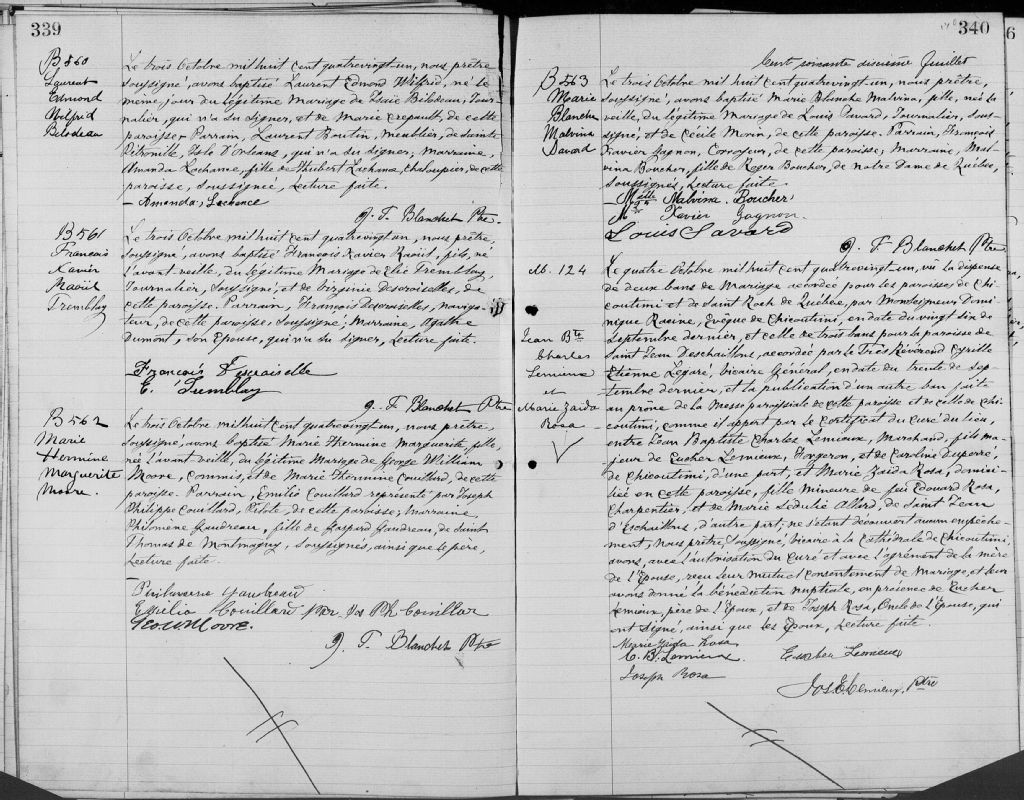 339
B 560
Laurent
Edmond
Wilfrid
Belodeau
Le trois Octobre mil huit cent quatrevingt-un, nous prêtre
soussigné, avons baptisé Laurent Edmond Wilfrid, né le
même jour du légitime Mariage de Isaïe Bélodeau, Jour-
nalier, qui n'a su signer, et de Marie Crepault, de cette
paroisse; Parrain, Laurent Boutin, Meublier, de Sainte
Pétronille, Isle d'Orleans, qui n'a su signer; Marraine,
Amanda Lachance, fille de Lachance, Chaloupier, de cette
paroisse, soussignée, Lecture faite.
Amanda Lachance
J. F. Blanchet Ptre
B 561
Francois
Xavier
Raoul
Tremblay
Le trois Octobre mil huit cent quatrevingt un, nous prêtre,
soussigné, avons baptisé François Xavier Raoul, fils, né
l'avant veille, du légitime Mariage de Elie Tremblay,
Journalier, soussigné, et de Virginie Desroiselles, de
cette paroisse. Parrain, François Desroiselles, naviga-
teur, de cette paroisse, soussigné; Marraine, Agathe
Dumont, son Epouse, qui n'a su signer, Lecture faite.
François
E. Tremblay
J. F. Blanchet Ptre
B 562
Marie
Hermine
Marguerite
Moore.
Le trois Octobre mil huit cent quatrevingt un, nous prêtre,
soussigné, avons baptisé Marie Hermine Marguerite, fille,
née l'avant veille, du légitime Mariage de George William
Moore, Commis, et de Marie Hermine Couillard, de cette
paroisse. Parrain, Emilio Couillard représenté par Joseph
Philippe Couillard, Pilote, de cette paroisse; Marraine,
Philomène Gaudreau, fille de Gaspard Gaudreau, de Saint
Thomas de Montmagny, soussignés, ainsi que le père,
Lecture faite.
Philomène Gaudreau
Emilio Couillard per Jos Ph Couillar
Geo W Moore.
J. F. Blanchet Ptre
340
Cent soixante dixième feuillet
B 563
Marie
Blanche
Malvina
Savard
Le trois Octobre mil huit cent quatrevingt un, nous prêtre,
soussigné, avons baptisé Marie Blanche Malvina, fille, née la
veille, du légitime Mariage de Louis Savard, Journalier, sous-
signé, et de Cécile Morin, de cette paroisse. Parrain, François
Xavier Gagnon, Corroyeur, de cette paroisse, Marraine, Mal-
vina Boucher, fille de Roger Boucher, de Notre Dame de Québec,
soussignés, Lecture faite
Melle Malvina Boucher
Mr Xavier Gagnon.
Louis Savard
J. F Blanchet Ptre
M. 124
Jean Bte
Charles
Lemieux
et
Marie Zaïda
Rosa
Le quatre Octobre mil huit cent quatrevingt-un, vu la dispense
de deux bans de Mariage accordée pour les paroisses de Chi-
coutimi et de Saint Roch de Québec, par Monseigneur Domi-
nique Racine, Evêque de Chicoutimi, en date du vingt six de
Septembre dernier, et celle de trois bans pour la paroisse de
Saint Jean Deschaillons, accordée par le Très Révérend Cyrille
Etienne Légaré, vicaire Général, en date du trente de Sep-
tembre dernier, et la publication d'un autre ban faite
au prône de la Messe paroissiale de cette paroisse et de celle de Chi-
coutimi, comme il appert par le certificat du curé du lieu,
entre Jean Baptiste Charles Lemieux, Marchand, fils ma-
jeur de Eucher Lemieux, Forgeron, et de Caroline Duperré,
de Chicoutimi, d'une part, et Marie Zaïda Rosa, domici-
liée en cette paroisse, fille mineure de feu Edouard Rosa,
Charpentier, et de Marie Allard, de Saint Jean
d'Eschaillons, d'autre part; ne s'étant découvert aucun empêche-
ment, nous prêtre, soussigné, vicaire à la Cathédrale de Chicoutimi
avons, avec l'autorisation du curé et avec l'agrément de la mère
de l'Epouse, reçu leur mutuel consentement de Mariage, et leur
avons donné la bénédiction nuptiale, en présence de Eucher
Lemieux, père de l'Epoux, et de Joseph Rosa, Oncle de l'Epouse, qui
ont signé, ainsi que les Epoux, Lecture faite.
Marie Zaïda Rosa
C. B. Lemieux.
Eucher Lemieux
Joseph Rosa
Jos. E. Lemieux, Ptre
6